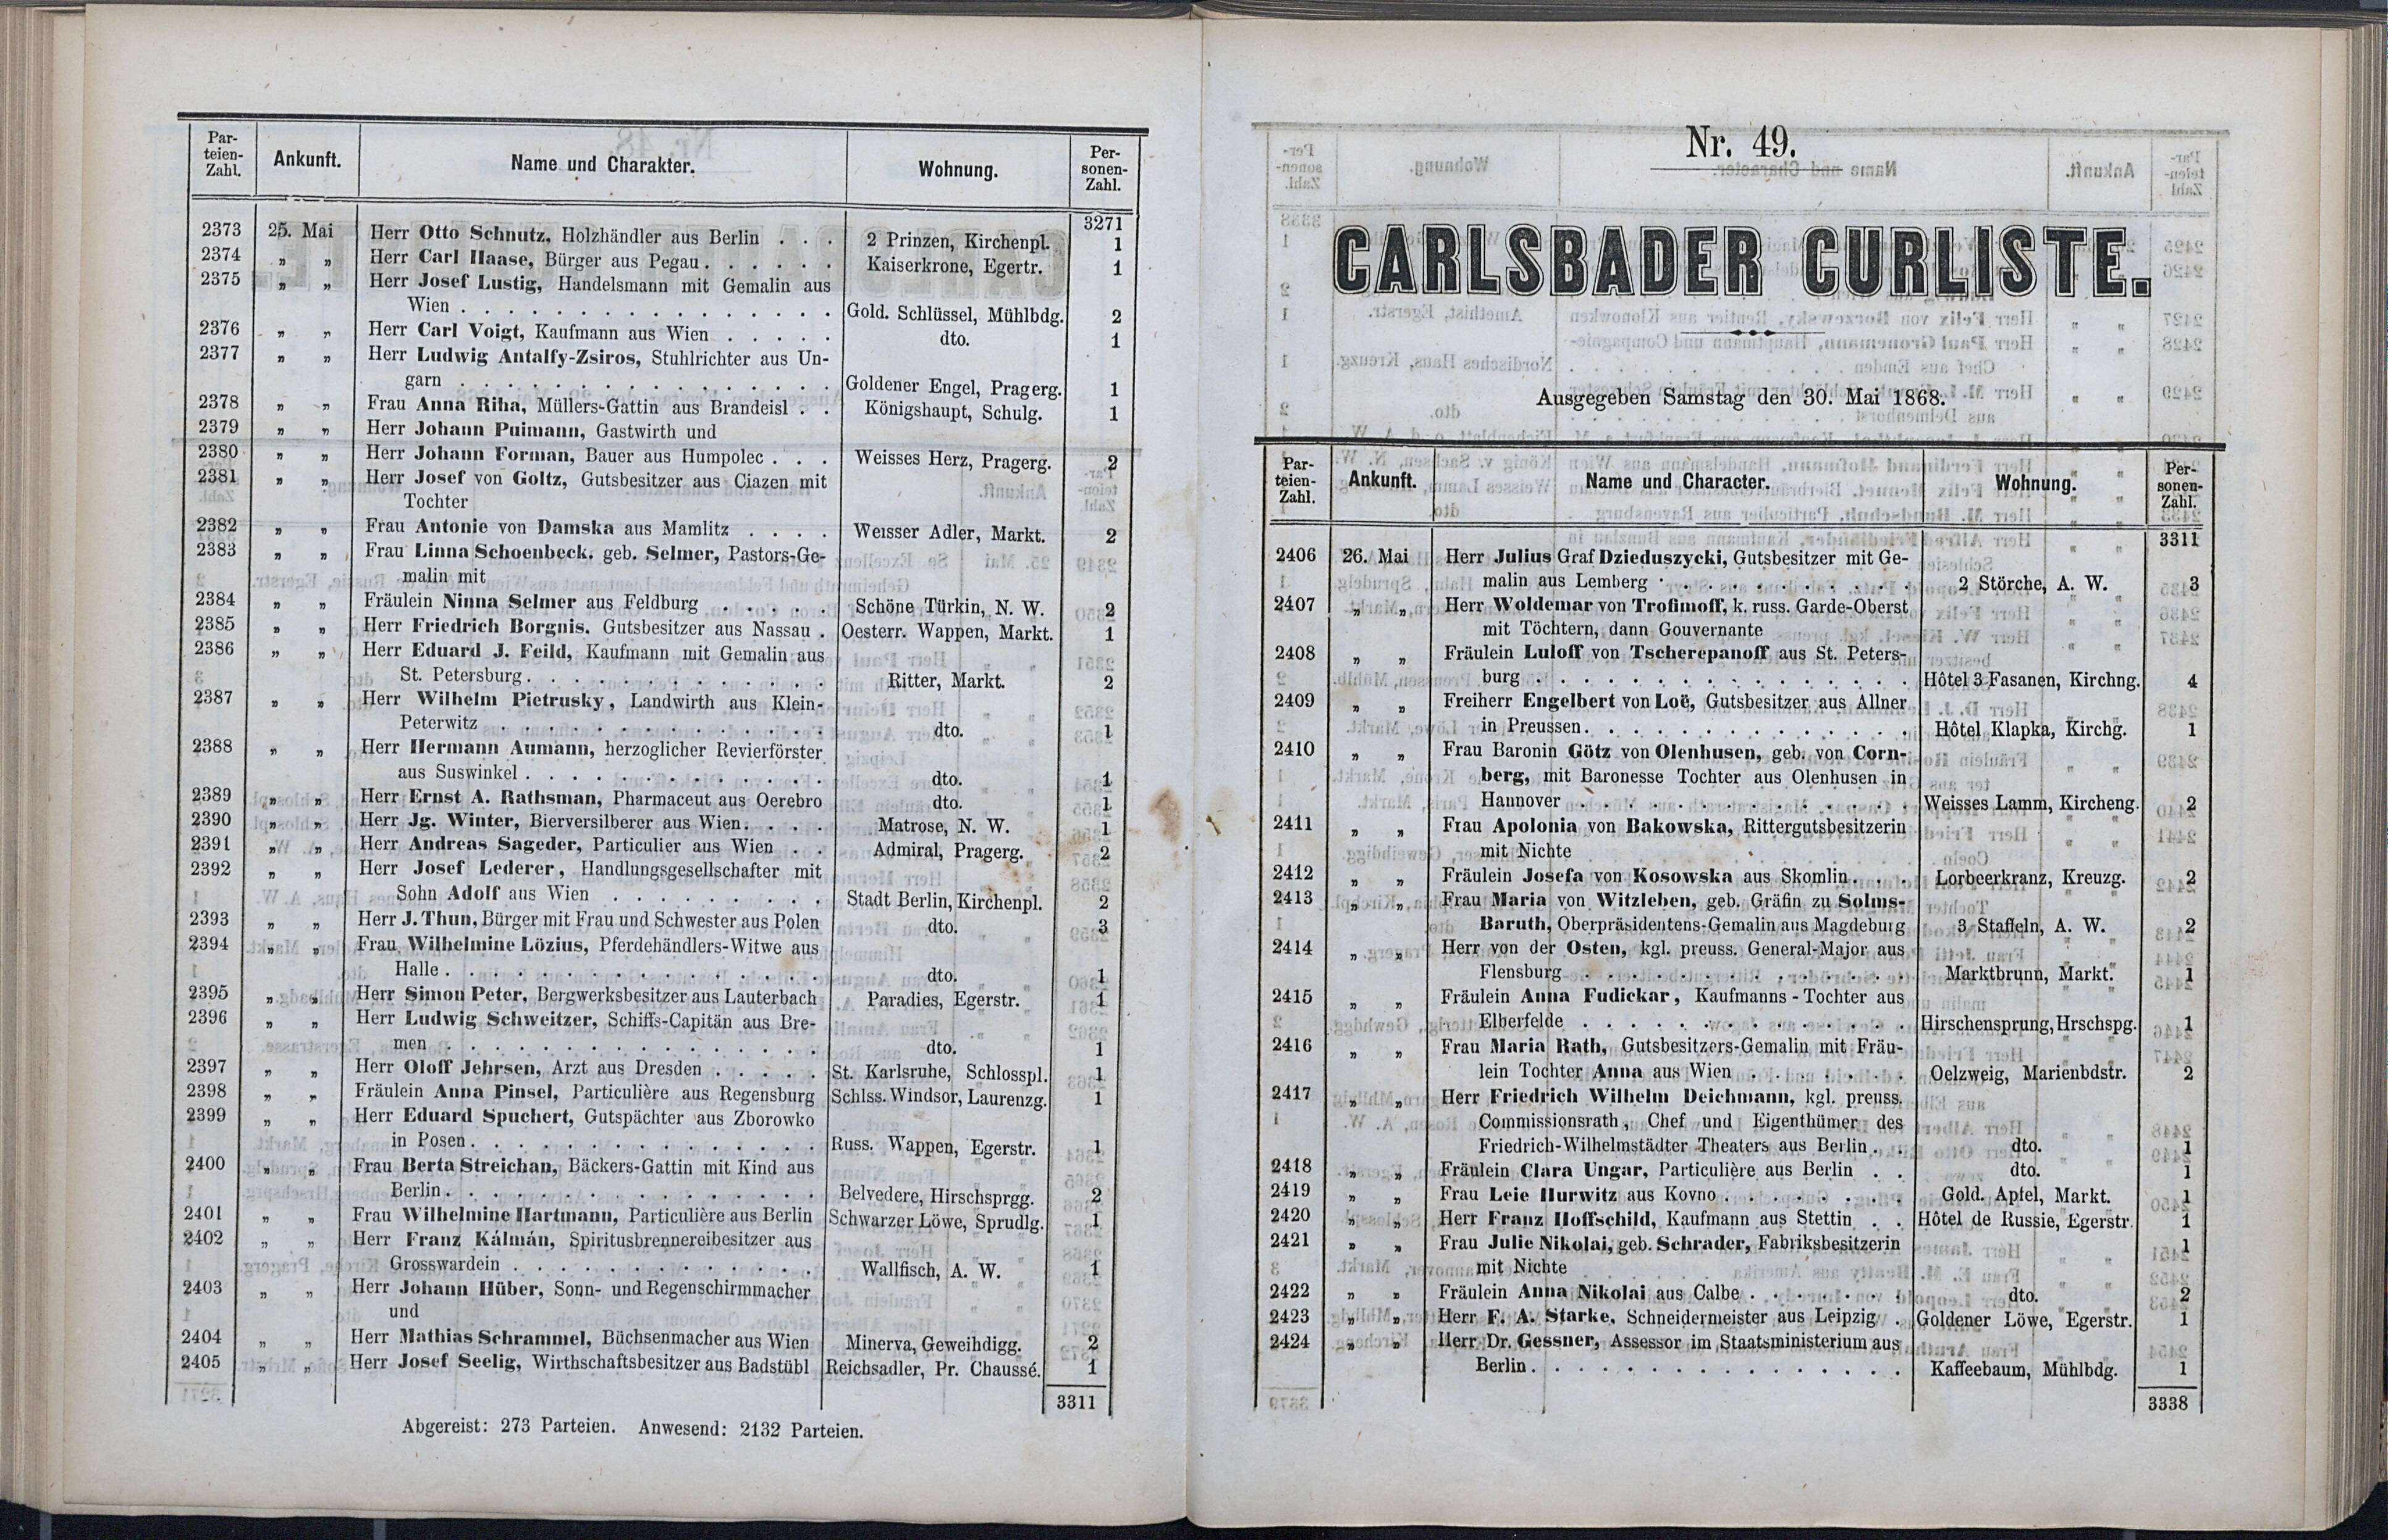 Par-teien-Zahl. Ankunft. Name und Charakter. Wohnung. Per-sonen-Zahl.
3271
2373 25. Mai Herr Otto Schnutz, Holzhändler aus Berlin . . . 2 Prinzen, Kirchenpl. 1
2374 „ „ Herr Carl Haase, Bürger aus Pegau . . . . . . Kaiserkrone, Egertr. 1
2375 „ „ Herr Josef Lustig, Handelsmann mit Gemalin aus
Wien . . . . . . . . . . . . . . . . Gold. Schlüssel, Mühlbdg. 2
2376 „ „ Herr Carl Voigt, Kaufmann aus Wien . . . . . dto. 1
2377 „ „ Herr Ludwig Antalfy-Zsiros, Stuhlrichter aus Un-
garn . . . . . . . . . . . . . . . . Goldener Engel, Pragerg. 1
2378 „ „ Frau Anna Riha, Müllers-Gattin aus Brandeisl . . Königshaupt, Schulg. 1
2379 „ „ Herr Johann Puimann, Gastwirth und
2380 „ „ Herr Johann Forman, Bauer aus Humpolec . . . Weisses Herz, Pragerg. 2
2381 „ „ Herr Josef von Goltz, Gutsbesitzer aus Ciazen mit
Tochter
2382 „ „ Frau Antonie von Damska aus Mamlitz . . . . Weisser Adler, Markt. 2
2383 „ „ Frau Linna Schoenbeck, geb. Selmer, Pastors-Ge-
malin mit
2384 „ „ Fräulein Ninna Selmer aus Feldburg . . . . . Schöne Türkin, N. W. 2
2385 „ „ Herr Friedrich Borgnis, Gutsbesitzer aus Nassau . Oesterr. Wappen, Markt. 1
2386 „ „ Herr Eduard J. Feild, Kaufmann mit Gemalin aus
St. Petersburg . . . . . . . . . . . . . Ritter, Markt. 2
2387 „ „ Herr Wilhelm Pietrusky, Landwirth aus Klein-
Peterwitz . . . . . . . . . . . . . . dto. 1
2388 „ „ Herr Hermann Aumann, herzoglicher Revierförster
aus Suswinkel . . . . . . . . . . . . . dto. 1
2389 „ „ Herr Ernst A. Rathsman, Pharmaceut aus Oerebro dto. 1
2390 „ „ Herr Jg. Winter, Bierversilberer aus Wien . . . . Matrose, N. W. 1
2391 „ „ Herr Andreas Sageder, Particulier aus Wien . . Admiral, Pragerg. 2
2392 „ „ Herr Josef Lederer, Handlungsgesellschafter mit
Sohn Adolf aus Wien . . . . . . . . . Stadt Berlin, Kirchenpl. 2
2393 „ „ Herr J. Thun, Bürger mit Frau und Schwester aus Polen dto. 3
2394 „ „ Frau Wilhelmine Lözius, Pferdehändlers-Witwe aus
Halle . . . . . . . . . . . . . . . . dto. 1
2395 „ „ Herr Simon Peter, Bergwerksbesitzer aus Lauterbach Paradies, Egerstr. 1
2396 „ „ Herr Ludwig Schweitzer, Schiffs-Capitän aus Bre-
men . . . . . . . . . . . . . . . . dto. 1
2397 „ „ Herr Oloff Jehrsen, Arzt aus Dresden . . . . . St. Karlsruhe, Schlosspl. 1
2398 „ „ Fräulein Anna Pinsel, Particulière aus Regensburg Schlss. Windsor, Laurenzg. 1
2399 „ „ Herr Eduard Spuchert, Gutspächter aus Zborowko
in Posen . . . . . . . . . . . . . . . Russ. Wappen, Egerstr. 1
2400 „ „ Frau Berta Streichan, Bäckers-Gattin mit Kind aus
Berlin . . . . . . . . . . . . . . . . Belvedere, Hirschsprgg. 2
2401 „ „ Frau Wilhelmine Hartmann, Particulière aus Berlin Schwarzer Löwe, Sprudlg. 1
2402 „ „ Herr Franz Kálmán, Spiritusbrennereibesitzer aus
Grosswardein . . . . . . . . . . . . . Wallfisch, A. W. 1
2403 „ „ Herr Johann Hüber, Sonn- und Regenschirmmacher
und
2404 „ „ Herr Mathias Schrammel, Büchsenmacher aus Wien Minerva, Geweihdigg. 2
2405 „ „ Herr Josef Seelig, Wirthschaftsbesitzer aus Badstübl Reichsadler, Pr. Chaussé. 1
3311
Abgereist: 273 Parteien. Anwesend: 2132 Parteien.
Nr. 49.
CARLSBADER CURLISTE.
Ausgegeben Samstag den 30. Mai 1868.
Par-teien-Zahl. Ankunft. Name und Character. Wohnung. Per-sonen-Zahl.
3311
2406 26. Mai Herr Julius Graf Dzieduszycki, Gutsbesitzer mit Ge-
malin aus Lemberg . . . . . . . . . . . 2 Störche, A. W. 3
2407 „ „ Herr Woldemar von Trofimoff, k. russ. Garde-Oberst
mit Töchtern, dann Gouvernante
2408 „ „ Fräulein Luloff von Tscherepanoff aus St. Peters-
burg . . . . . . . . . . . . . . . . Hôtel 3 Fasanen, Kirchng. 4
2409 „ „ Freiherr Engelbert von Loë, Gutsbesitzer aus Allner
in Preussen . . . . . . . . . . . . . . Hôtel Klapka, Kirchg. 1
2410 „ „ Frau Baronin Götz von Olenhusen, geb. von Corn-
berg, mit Baronesse Tochter aus Olenhusen in
Hannover . . . . . . . . . . . . . . Weisses Lamm, Kircheng. 2
2411 „ „ Frau Apolonia von Bakowska, Rittergutsbesitzerin
mit Nichte
2412 „ „ Fräulein Josefa von Kosowska aus Skomlin . . . Lorbeerkranz, Kreuzg. 2
2413 „ „ Frau Maria von Witzleben, geb. Gräfin zu Solms-
Baruth, Oberpräsidentens-Gemalin aus Magdeburg 3 Staffeln, A. W. 2
2414 „ „ Herr von der Osten, kgl. preuss. General-Major aus
Flensburg . . . . . . . . . . . . . . Marktbrunn, Markt. 1
2415 „ „ Fräulein Anna Fudickar, Kaufmanns-Tochter aus
Elberfelde . . . . . . . . . . . . . . Hirschensprung, Hrschspg. 1
2416 „ „ Frau Maria Rath, Gutsbesitzers-Gemalin mit Fräu-
lein Tochter Anna aus Wien . . . . . . . Oelzweig, Marienbdstr. 2
2417 „ „ Herr Friedrich Wilhelm Deichmann, kgl. preuss.
Commissionsrath, Chef und Eigenthümer des
Friedrich-Wilhelmstädter Theaters aus Berlin . . dto. 1
2418 „ „ Fräulein Clara Ungar, Particulière aus Berlin . . dto. 1
2419 „ „ Frau Leie Hurwitz aus Kovno . . . . . . . . Gold. Apfel, Markt. 1
2420 „ „ Herr Franz Hoffschild, Kaufmann aus Stettin . . Hôtel de Russie, Egerstr. 1
2421 „ „ Frau Julie Nikolai, geb. Schrader, Fabriksbesitzerin 1
mit Nichte
2422 „ „ Fräulein Anna Nikolai aus Calbe . . . . . . . dto. 2
2423 „ „ Herr F. A. Starke, Schneidermeister aus Leipzig . Goldener Löwe, Egerstr. 1
2424 „ „ Herr Dr. Gessner, Assessor im Staatsministerium aus
Berlin . . . . . . . . . . . . . . . . Kaffeebaum, Mühlbdg. 1
3338